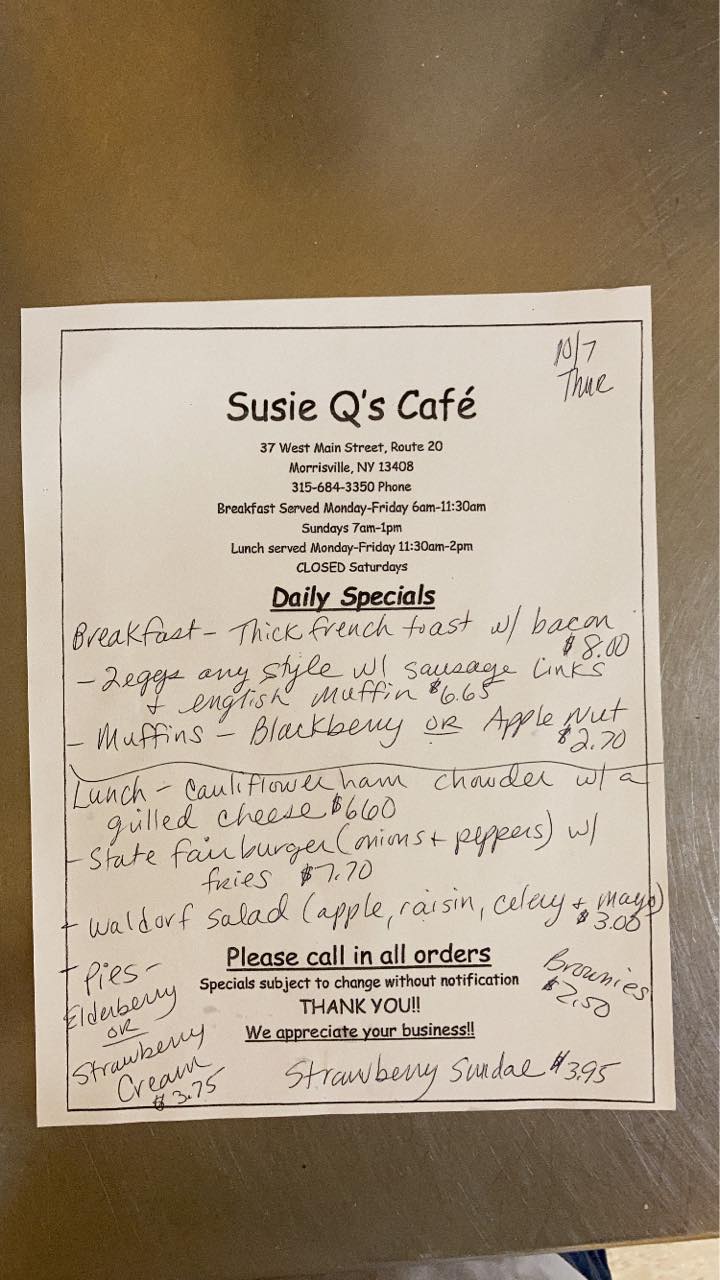 10/7
Thur
Susie Q's Café
37 West Main Street, Route 20
Morrisville, NY 13408
315-684-3350 Phone
Breakfast Served Monday-Friday 6am-11:30am
Sundays 7am-1pm
Lunch served Monday-Friday 11:30am-2pm
CLOSED Saturdays
Daily Specials
Breakfast - Thick french toast w/ bacon
$8.00
- 2 eggs any style w/ sausage links
+ english muffin $6.65
- Muffins - Blackberry OR Apple Nut
$2.70
Lunch - Cauliflower ham chowder w/ a
grilled cheese $6.60
- State fair burger (onions + peppers) w/
fries $7.70
- Waldorf salad (apple, raisin, celery + mayo)
$3.00
Please call in all orders
Specials subject to change without notification
THANK YOU!!
We appreciate your business!!
- Pies -
Elderberry
OR
Strawberry
Cream
$3.75
Brownies
$2.50
Strawberry Sundae $3.95